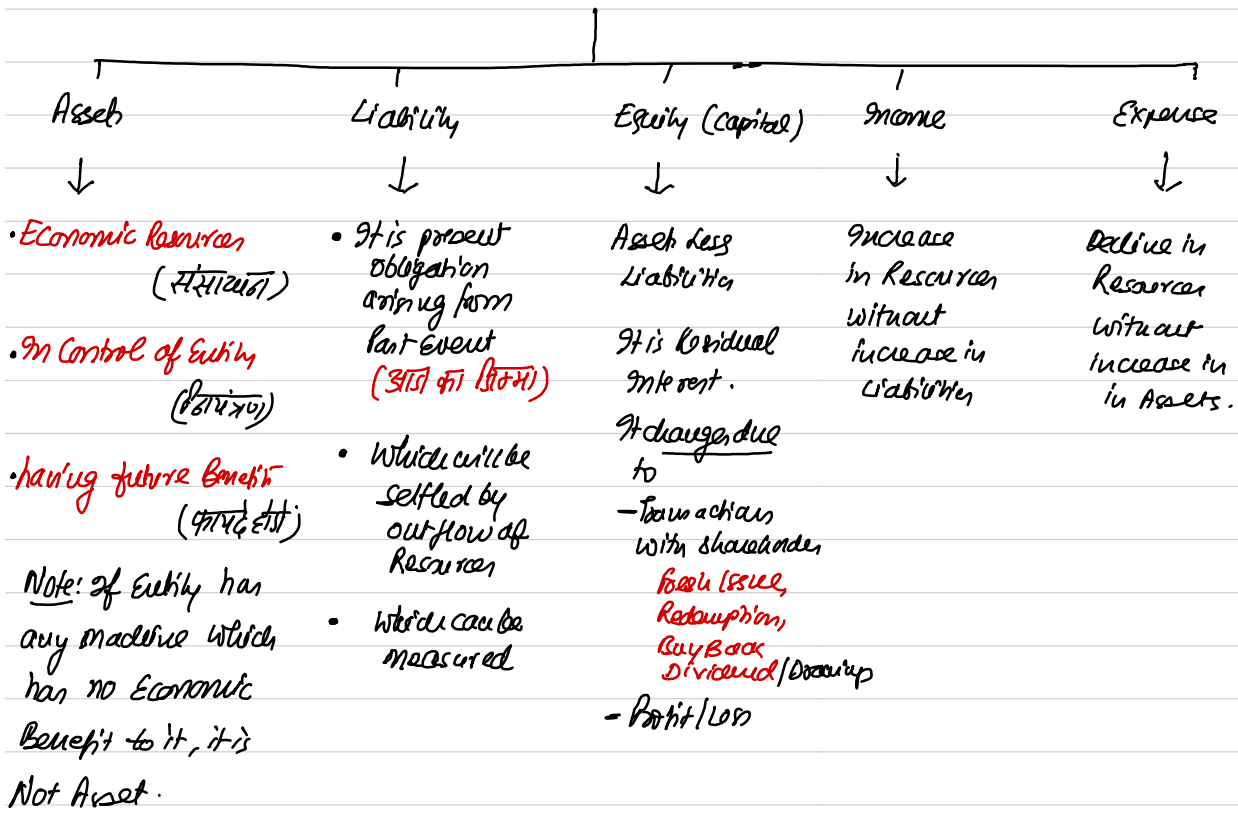 Asset
Liability
Equity (Capital)
Income
Expense
• Economic Resources
(संसाधनों)
• In Control of Entity
(नियंत्रण)
• having future Benefit
(फायदे होंगे)
Note: If Entity has
any machine which
has no Economic
Benefit to it, it is
Not Asset.
• It is present
obligation
arising from
Past Event
(आज का जिम्मा)
• Which will be
settled by
outflow of
Resources
• which can be
measured
Asset Less
Liabilities
It is Residual
Interest.
It changes due
to
- Transactions
with shareholder
Fresh Issue,
Redemption,
Buy Back
Dividend/Drawings
- Profit/Loss
Increase
in Resources
without
increase in
Liabilities
Decline in
Resources
without
increase in
in Assets.